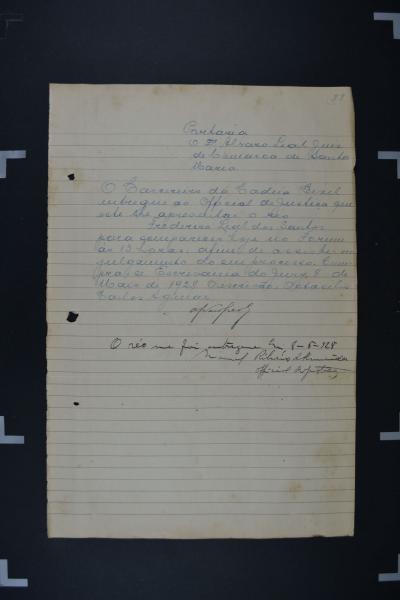 Portaria
O Dr. Alvaro Leal Juiz
de Comarca de Santa
Maria
O Carcereiro da Cadeia Civil
entregue ao Official de Justiça que
este lhe apresentar o réo
Frederico Leal dos Santos
para comparecer hoje no Forum
ás 13 horas, afim de assistir o
julgamento do seu processo. Cum
pra-se Escrevania do Jury, 8 de
de 1928 Escrivão,
Carlos Aguiar
O réo me foi entregue Em, 8-8-928
Manoel Ribeiro
official de justiça